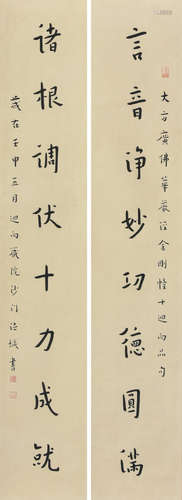 大方廣佛華嚴經金剛幢十迴向品句
言音淨妙功德圓滿
諸根調伏十力成就
歲在壬申三月迴向嚴院沙門書